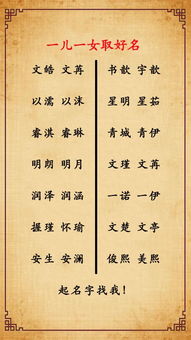 一儿一女取好名
文皓 文苒 书歆 宇歆
以濡 以沫 星明 星茹
睿淇 睿琳 青城 青伊
明朗 明月 文瑾 文苒
润泽 润涵 一诺 一伊
握瑾 怀瑜 文楚 文亭
安生 安澜 俊熙 美熙
起名字找我！